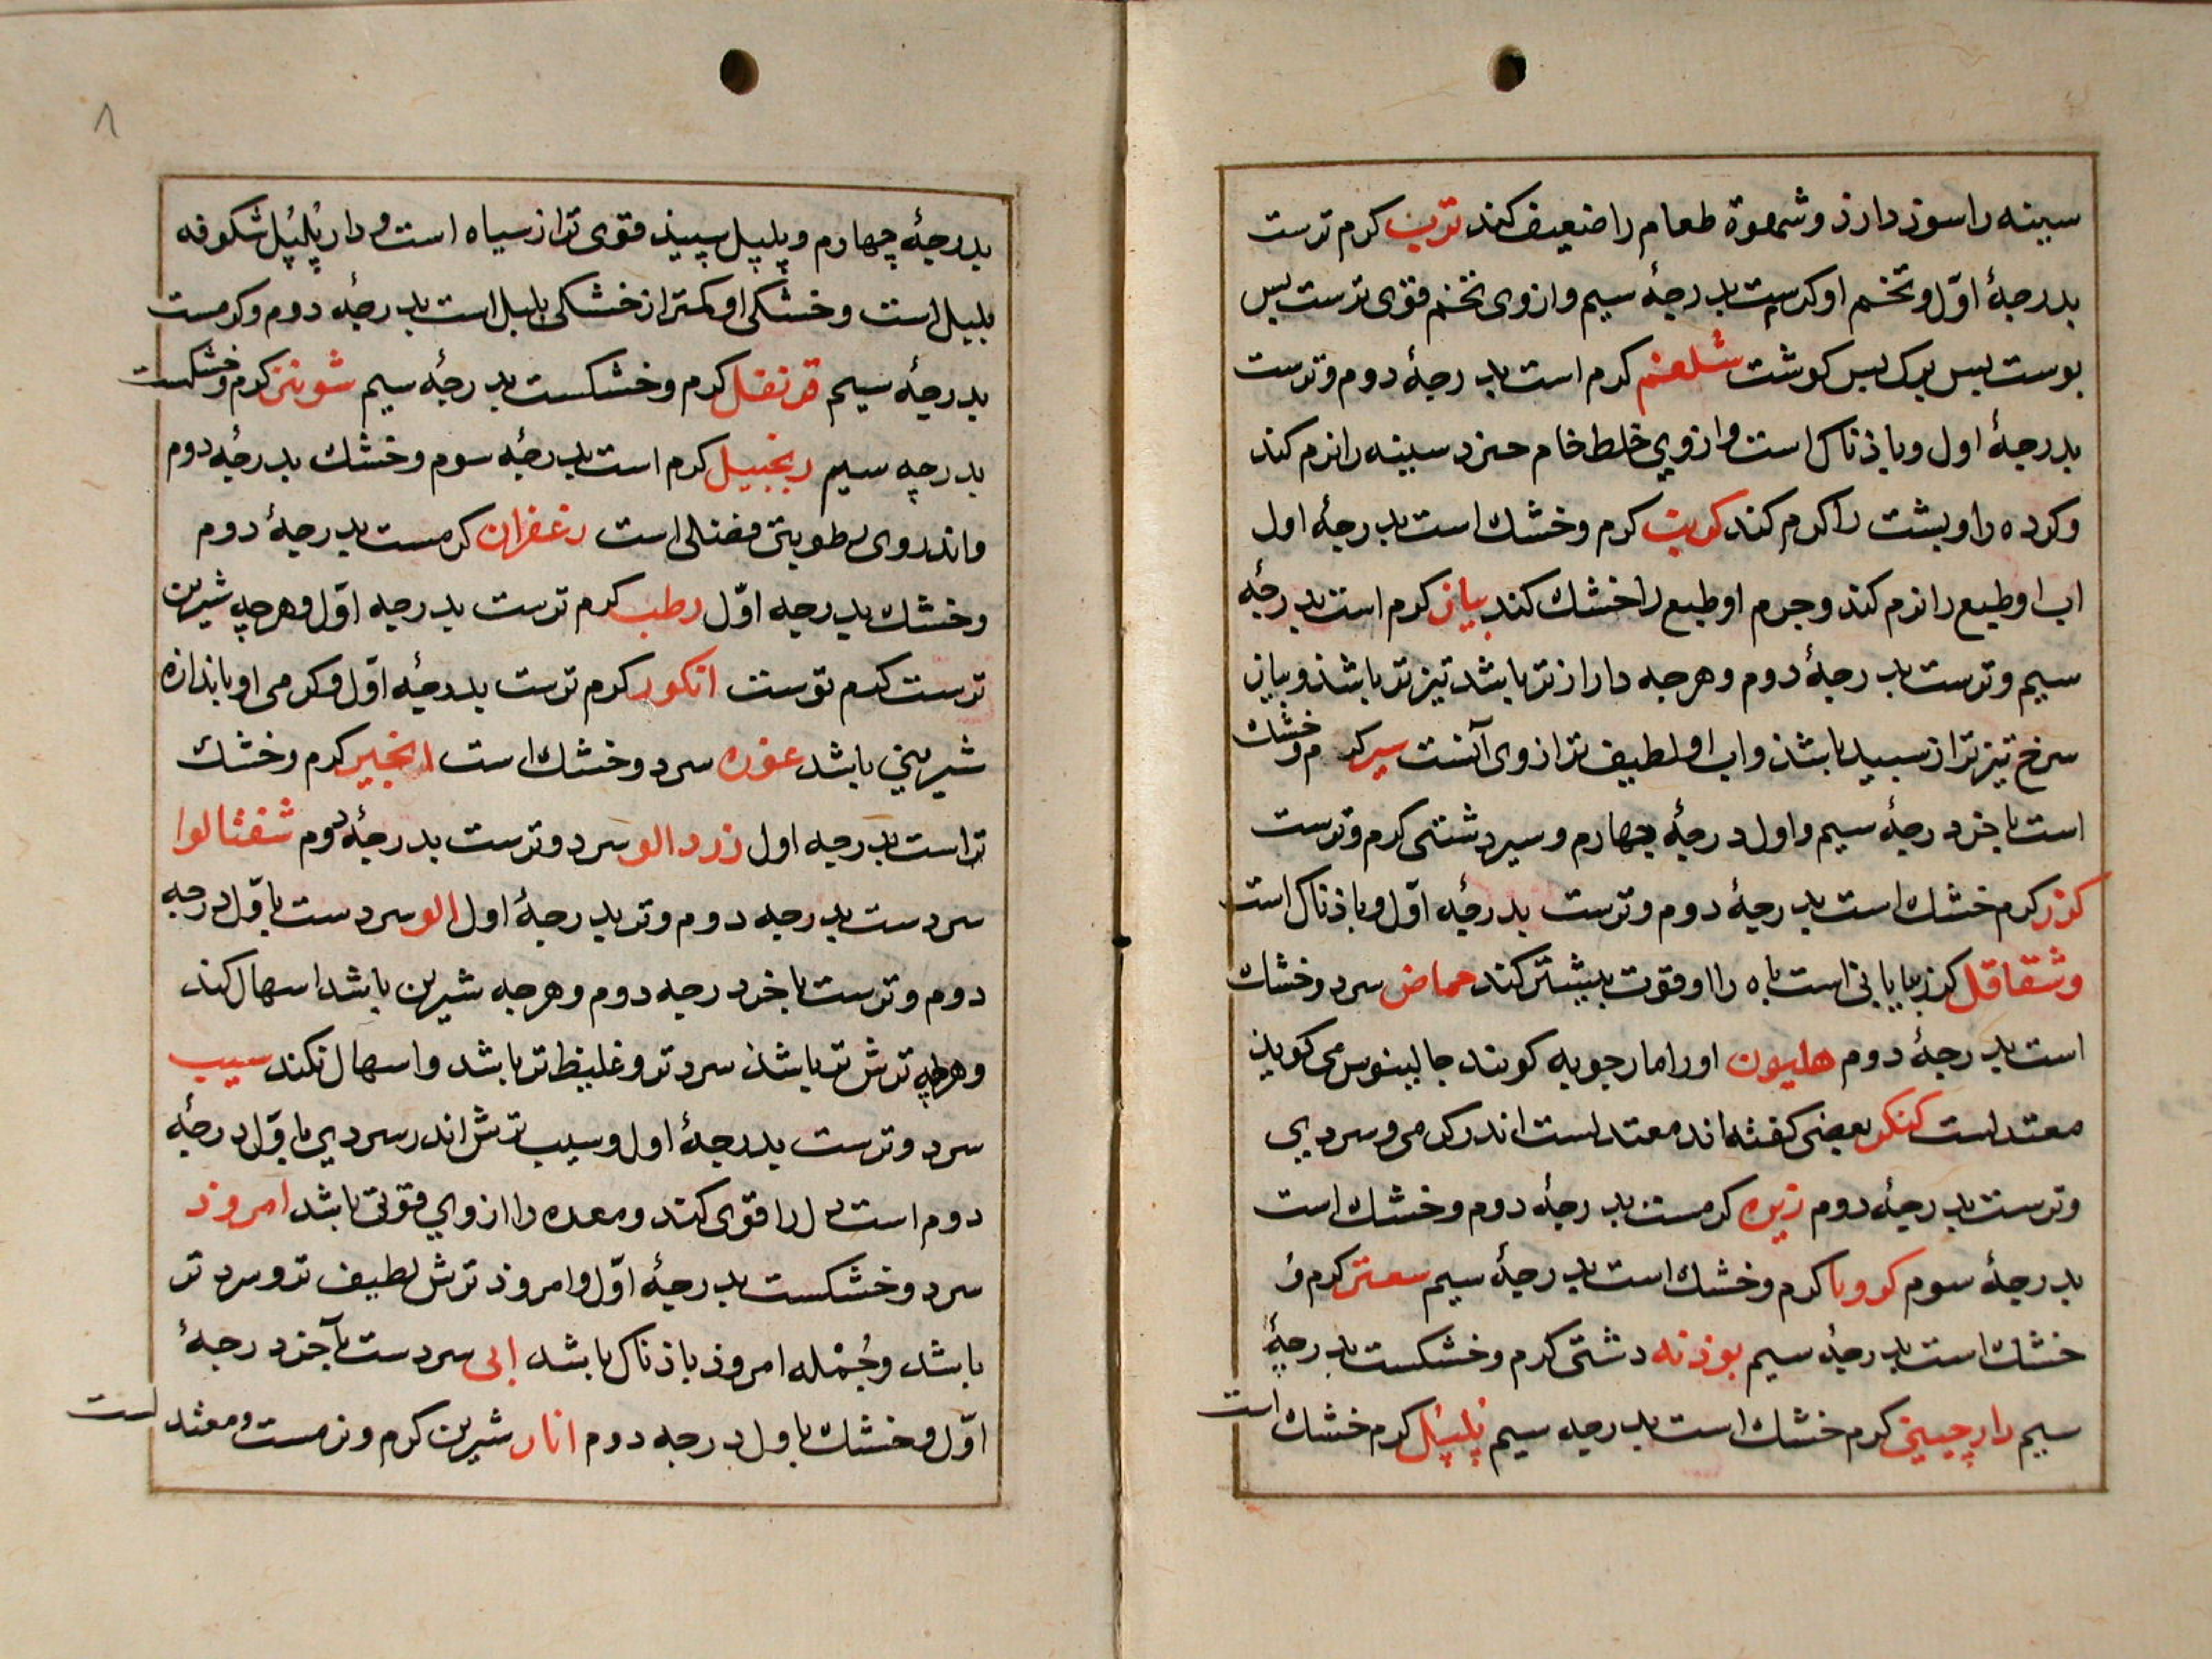 سینه را سوذ دارذ و شهوة طعام را ضعیف کند ترب کرم ترست
بدرجۀ اوّل و تخم او کرمست بدرجۀ سیم و از وی تخم قوی ترست بس
بوست بس برک بس کوشت شلغم کرم است بدرجۀ دوم و ترست
بدرجۀ اول و باذناک است و از وی خلط خام خیزد سینه را نرم کند
و کرده را و بشت را کرم کند کرنب کرم و خشک است بدرجۀ اول
اب او طبع را نرم کند و جرم او طبع را خشک کند بیاز کرم است بدرجۀ
سیم و ترست بدرجۀ دوم و هرجه دارازتر باشد تیزتر باشذ و بیاز
سرخ تیزتر از سبید باشذ و اب او لطیف تر از وی آنست سیر کرم و خشک
است باخر درجۀ سیم و اول درجۀ چهارم و سیر دشتی کرم و ترست
کزر کرم خشک است بدرجۀ دوم و ترست بدرجۀ اوّل و باذناک است
و شقاقل کزر بیابانی است باه را او قوت بیشتر کند حماض سرد و خشک
است بدرجۀ دوم هلیون او را مارجوبه کویند جالینوس می کویذ
معتدلست کنکر بعضی کفته اند معتدلست اندر کرمی و سردیی
و ترست بدرجۀ دوم زیره کرمست بدرجۀ دوم و خشک است
بدرجۀ سوم کرویا کرم و خشک است بدرجۀ سیم سعتر کرم و
خشک است بدرجۀ سیم بوذنه دشتی کرم و خشکست بدرجۀ
سیم دارچینی کرم خشک است بدرجه سیم پلپل کرم خشک است
۸
بدرجۀ چهارم و پلپل سپیذ قوی تر از سیاه است و دارپلپل شکوفه
بلبل است و خشکی او کمتر از خشکی بلبل است بدرجۀ دوم و کرمست
بدرجۀ سیم قرنفل کرم و خشکست بدرجۀ سیم شونیز کرم و خشکست
بدرچه سیم زنجبیل کرم است بدرجۀ سوم و خشک بدرجۀ دوم
و اندر وی رطوبتی فضلی است زعفران کرمست بدرجۀ دوم
و خشک بدرجه اوّل رطب کرم ترست بدرجه اوّل و هرچه شیرین
ترست کرم ترست انکور کرم ترست بدرجۀ اوّل و کرمی او باندازه
شیرینی باشد غوره سرد و خشک است انجیر کرم و خشک
تر است بدرجه اول زردالو سرد و ترست بدرجۀ دوم شفتالوا
سردست بدرجه دوم و تر بدرجۀ اول الو سردست باوّل درجه
دوم و ترست باخر درجه دوم و هرجه شیرین باشد اسهال کند
و هرچه ترش تر باشذ سردتر و غلیظ تر باشد و اسهال نکند سیب
سرد و ترست بدرجۀ اول و سیب ترش اندر سردیی باوّل درجۀ
دوم است دل را قوی کند و معده را از وی قوتی باشد امروذ
سرد و خشکست بدرجۀ اوّل و امروذ ترش لطیف تر و سرد تر
باشد و جُمْله امروذ باذناک باشد ابی سردست بآخر درجۀ
اوّل و خشک باول درجه دوم انار شیرین کرم و نرمست و معتدلست